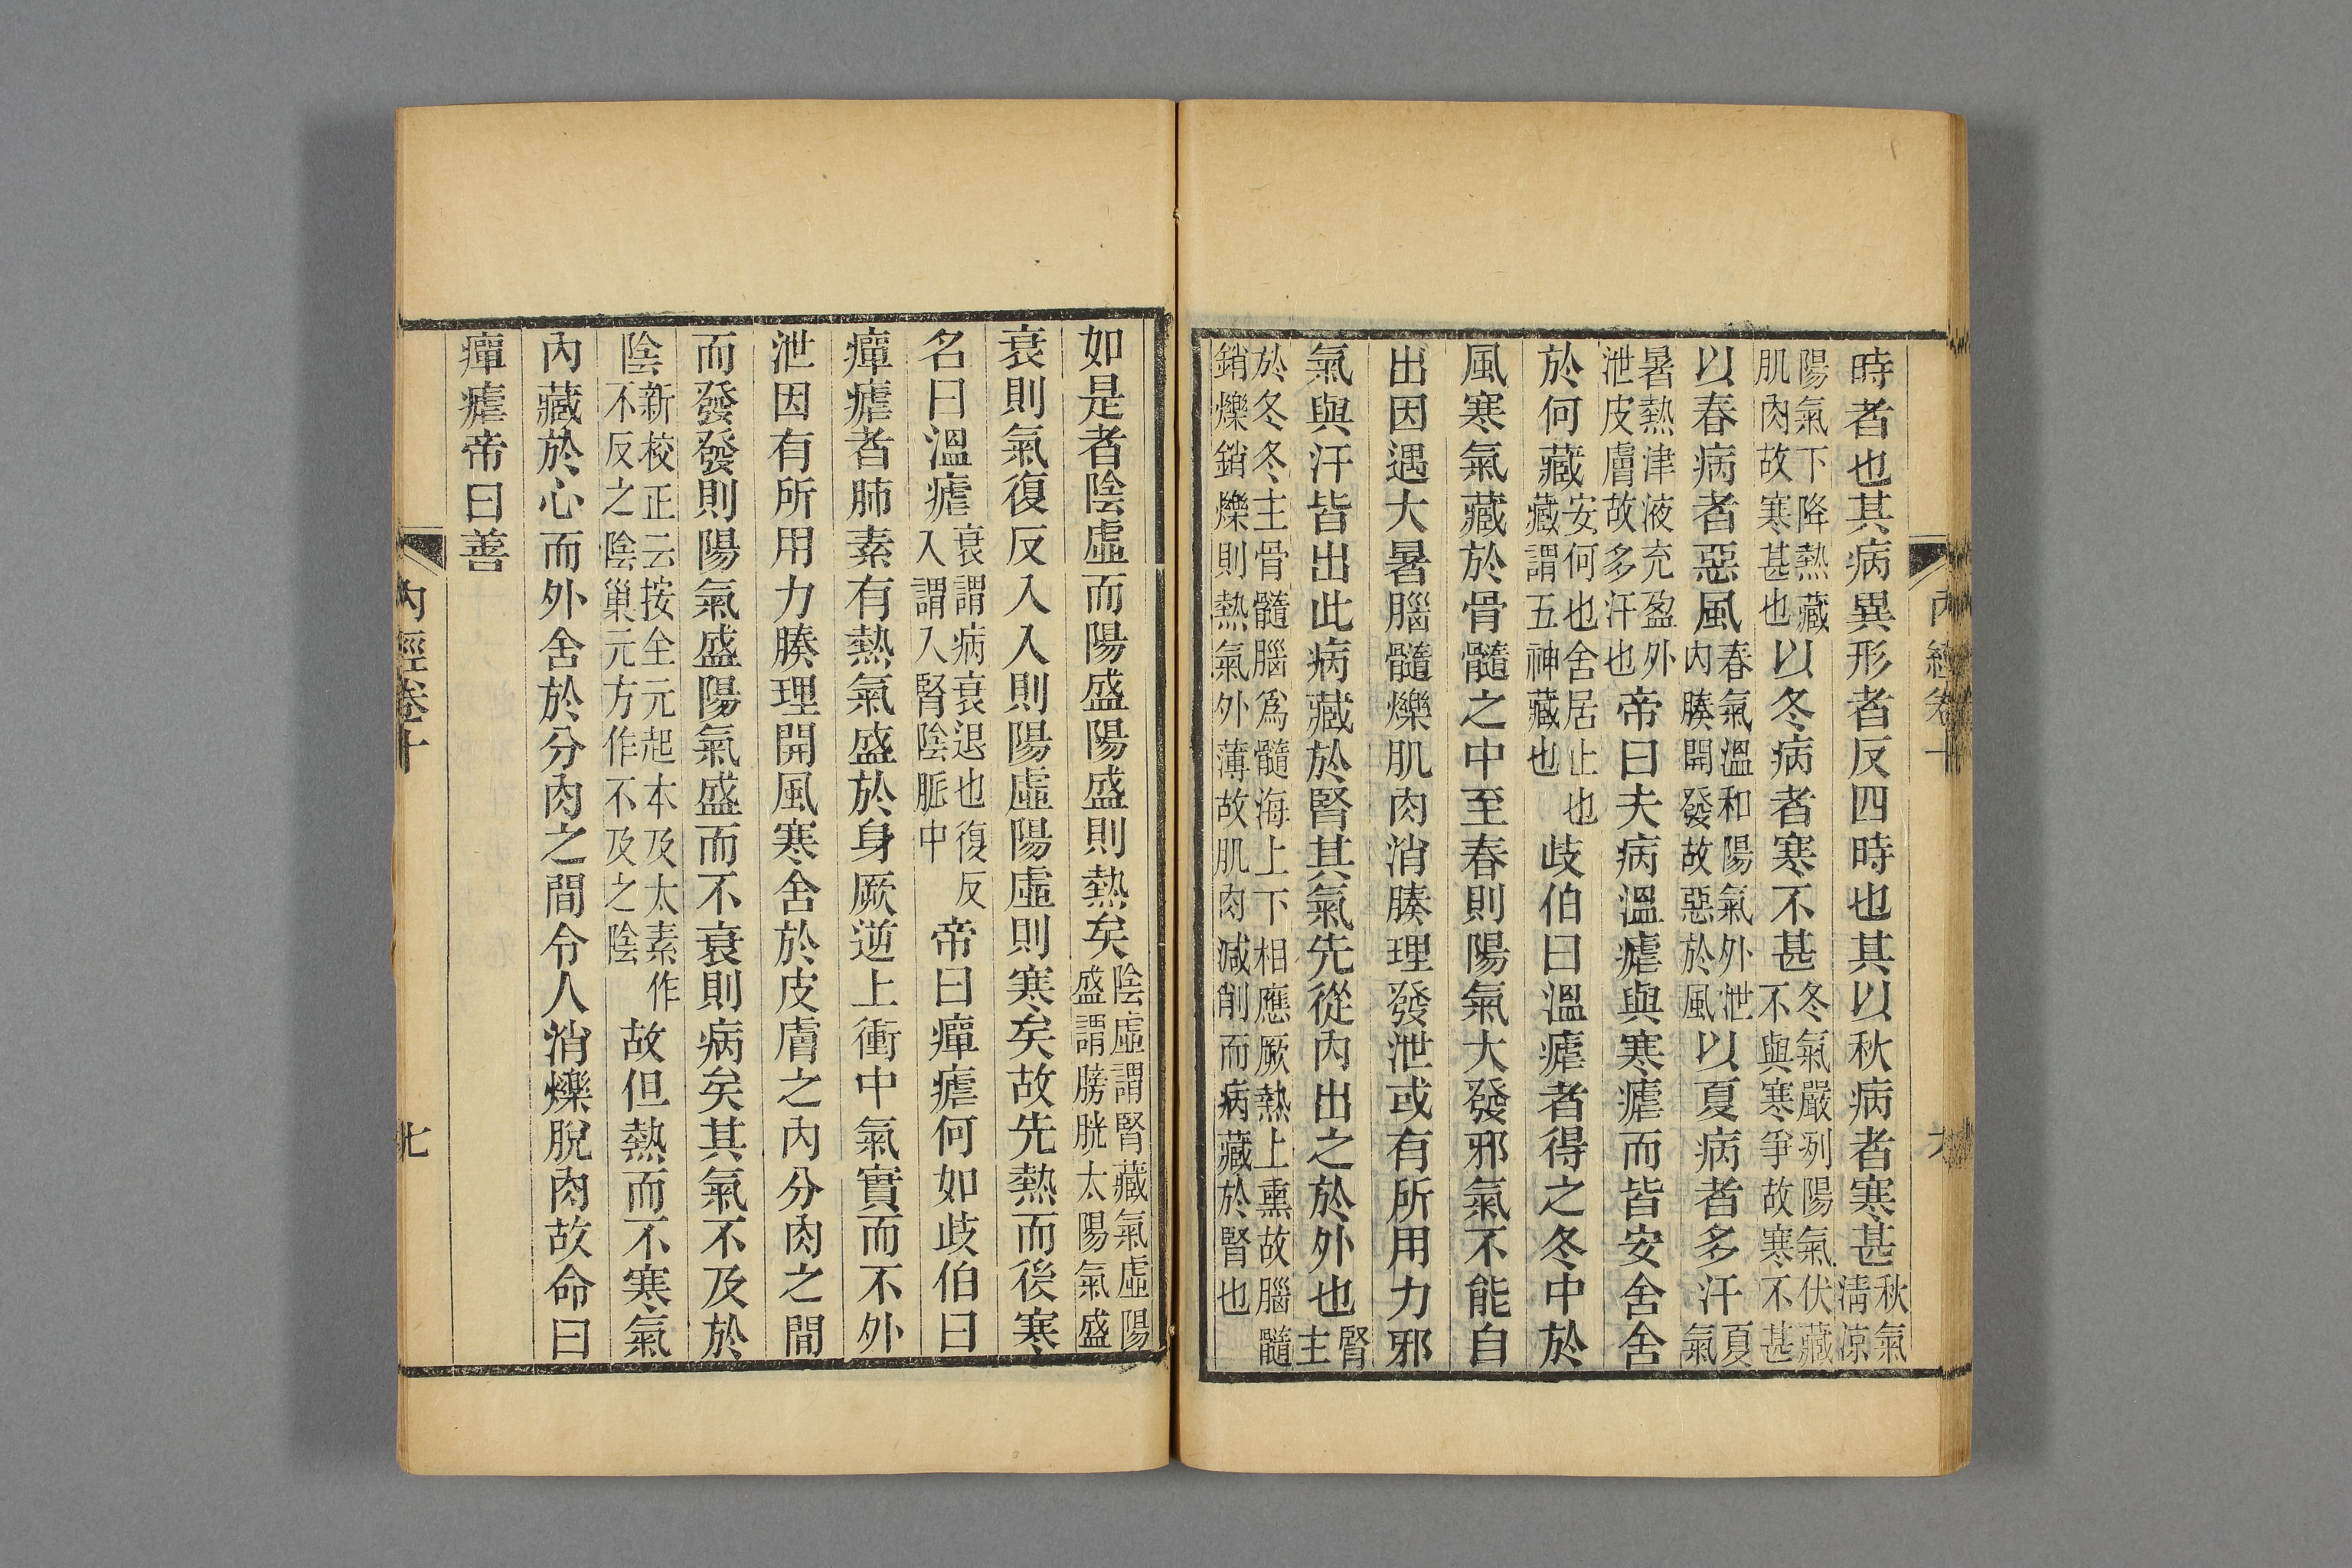 時者也其病異形者反四時也其以秋病者寒甚秋氣清凉
陽氣下降熱藏肌肉故寒甚也以冬病者寒不甚冬氣嚴冽陽氣伏藏不與寒爭故寒不甚
以春病者惡風春氣溫和陽氣外泄肉腠開發故惡於風以夏病者多汗夏氣
暑熱津液充盈外泄皮膚故多汗也帝曰夫病溫瘧與寒瘧而皆安舍舍
於何藏安何也舍居止也藏謂五神藏也歧伯曰溫瘧者得之冬中於
風寒氣藏於骨髓之中至春則陽氣大發邪氣不能自
出因遇大暑腦髓爍肌肉消腠理發泄或有所用力邪
氣與汗皆出此病藏於腎其氣先從內出之於外也腎主
於冬冬主骨髓腦爲髓海上下相應厥熱上熏故腦髓銷爍銷爍則熱氣外薄故肌肉減削而病藏於腎也
如是者陰虛而陽盛陽盛則熱矣陰虛謂腎藏氣虛陽盛謂膀胱太陽氣盛
衰則氣復反入入則陽虛陽虛則寒矣故先熱而後寒
名曰溫瘧衰謂病衰退也復反入謂入腎陰脈中帝曰癉瘧何如歧伯曰
癉瘧者肺素有熱氣盛於身厥逆上衝中氣實而不外
泄因有所用力腠理開風寒舍於皮膚之內分肉之間
而發發則陽氣盛陽氣盛而不衰則病矣其氣不及於
陰新校正云按全元起本及太素作不反之陰巢元方作不及之陰故但熱而不寒氣
內藏於心而外舍於分肉之間令人消爍脫肉故命曰
癉瘧帝曰善
內經卷十
七